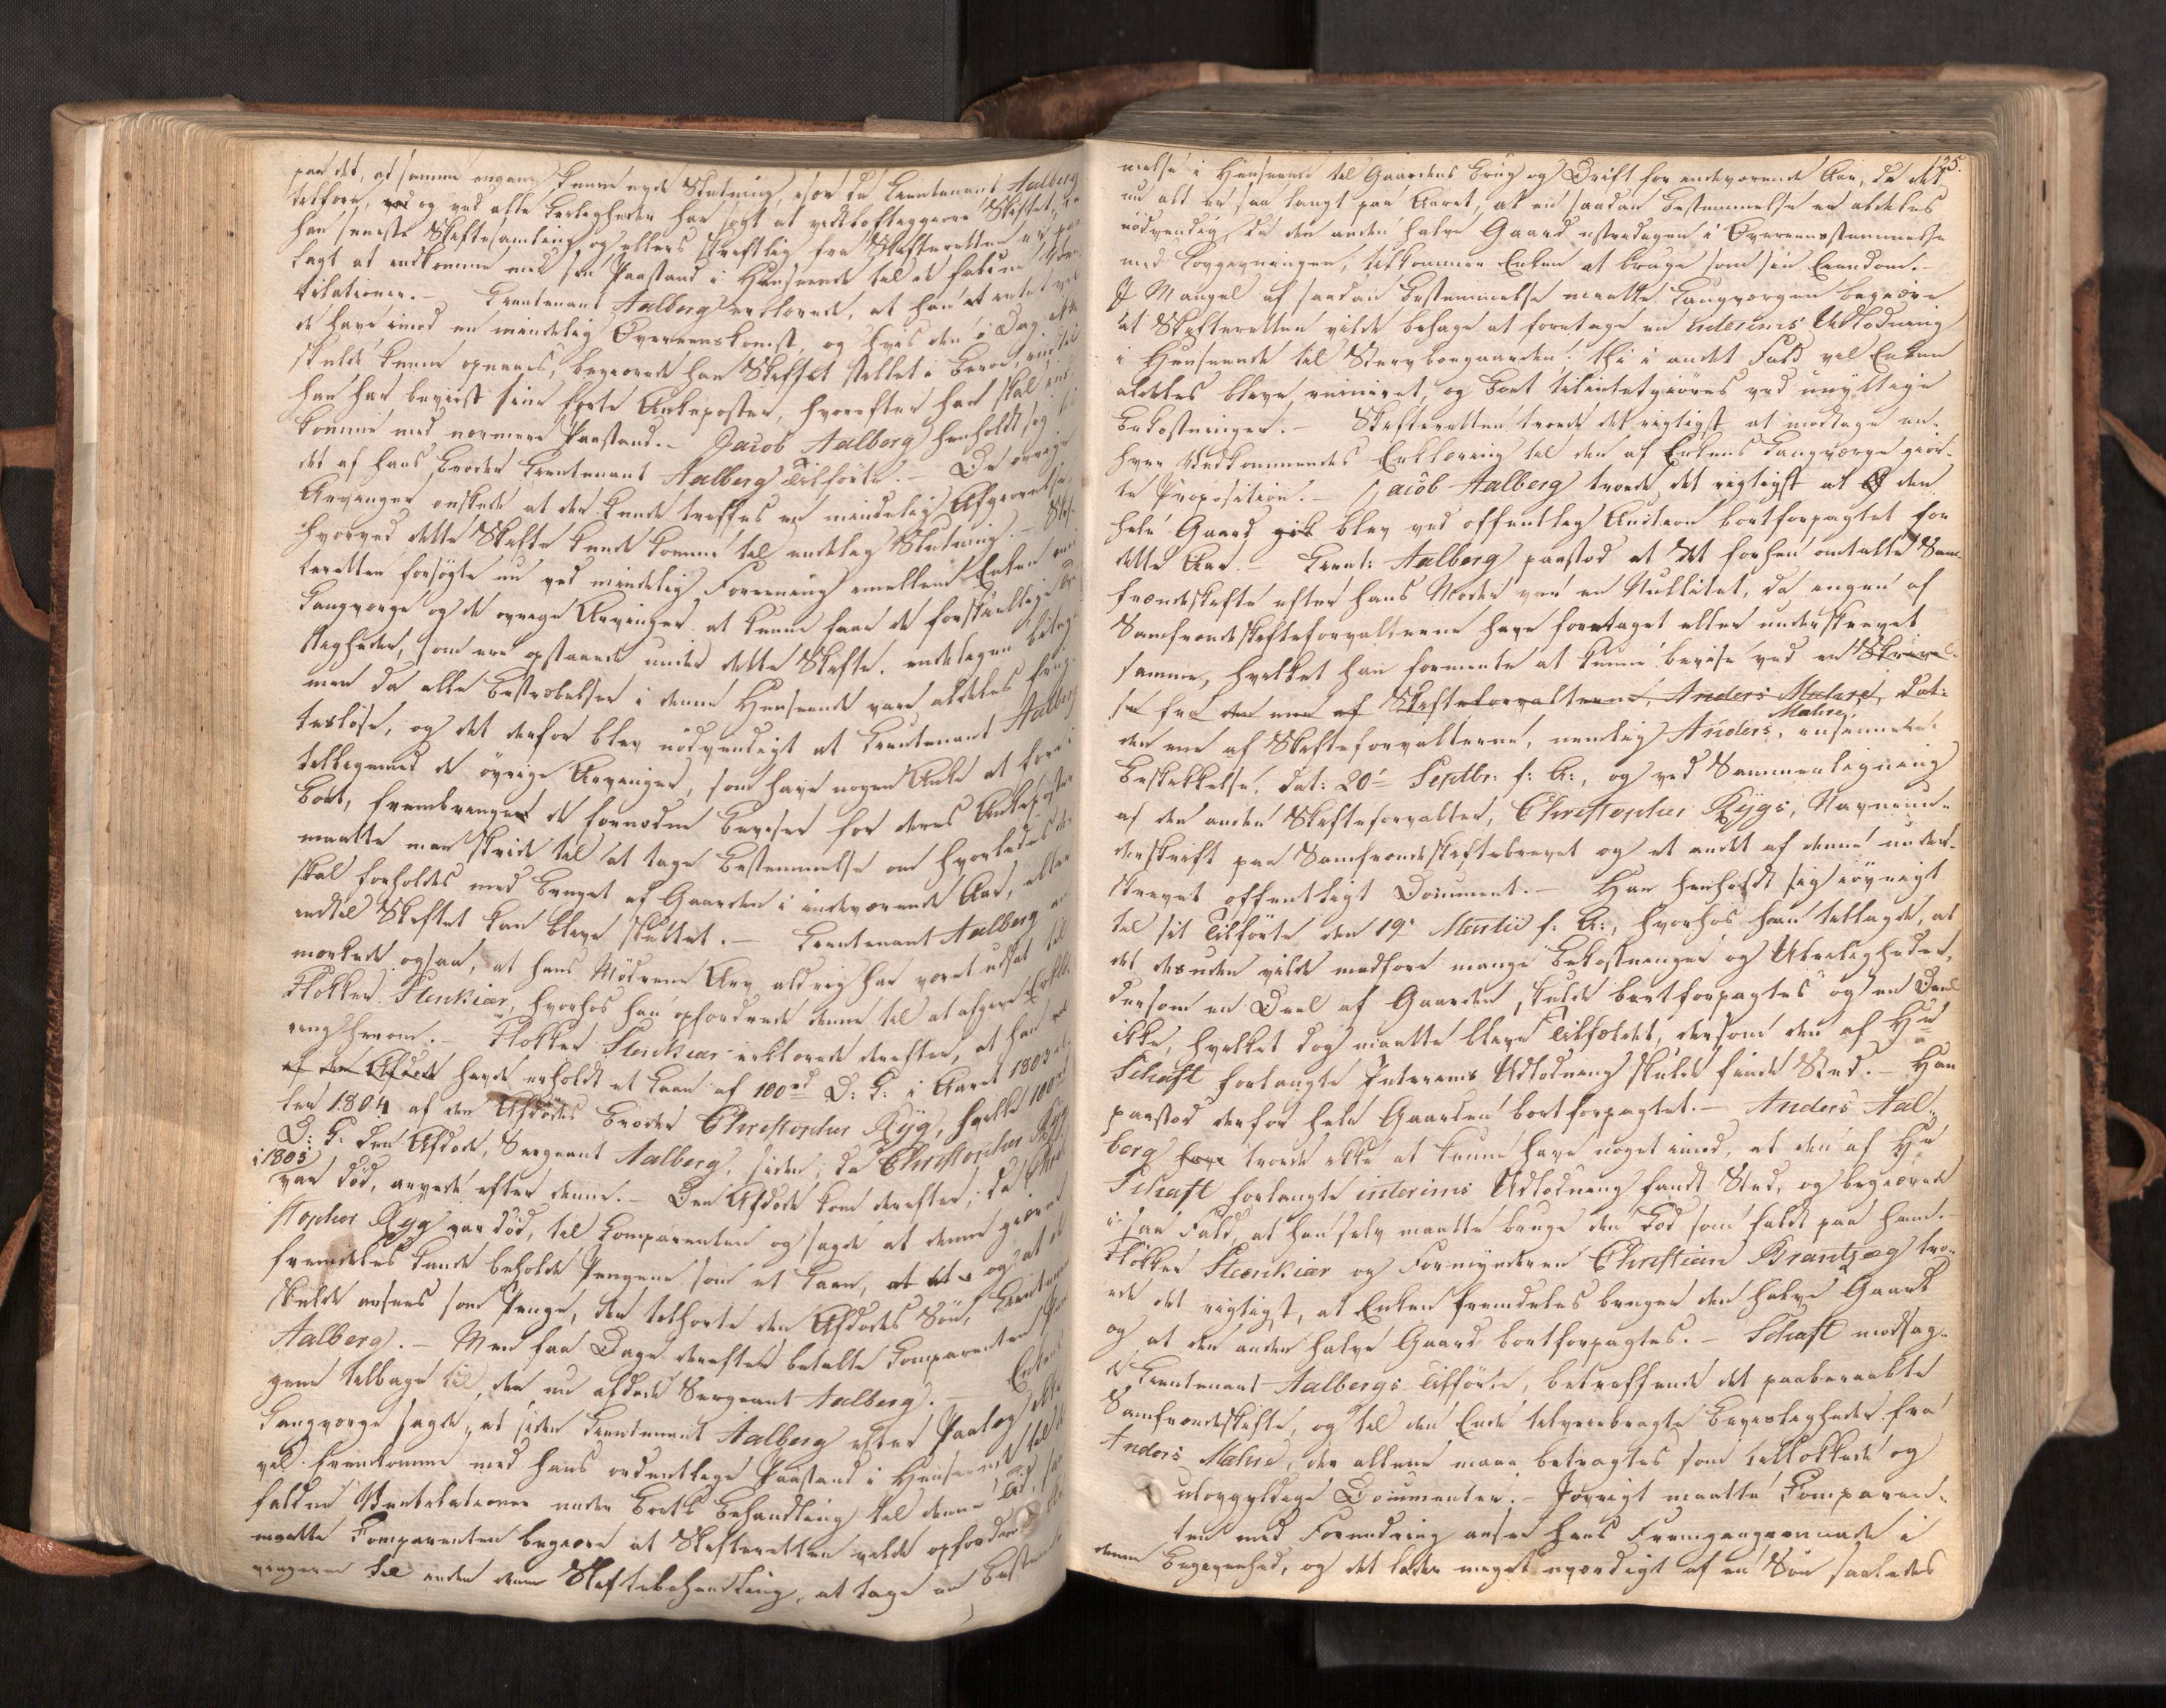 paa det, at samme engang kunne naae Slutning, især da Lieutenant Aalberg
tilforn, og ved alle Leiligheder har søgt at vidtløftiggjøre Skiftet,
han seneste Skiftesamling og ellers skriftlig fra Skifteretten er paa
lagt at indkomme med sin Paastand i Henseende til de faldne Ven-
tilationer. - Lieutenant Aalberg erklærede, at han intet vil
de have imod en mindelig Overeenskomst, og hvis den i Dag ikke
skulde kunne opnaaes, begjærede han Skiftet stillet i Beroe, indtil
han har beviist sine førte Ankeposter, hvorefter han skal ind-
komme med nærmere Paastand. - Jacob Aalberg henholdt sig til
det af hans Broder Lieutenant Aalberg Tilførte. - De øvrige
Arvinger ønskede at der kunde træffes en mindelig Afgjørelse,
hvorved dette Skifte kunde komme til endelig Slutning. - Skif-
teretten forsøgte nu ved mindelig Forening imellem Enken
Laugværge og de øvrige Arvinger at kunne faae de forskjellige
stigheder, som ere opstaaede under dette Skifte, endeligen bilag-
men da alle Bestræbelser i denne Henseende vare aldeles frug-
tesløse, og det derfor blev nødvendigt at Lieutenant Aalberg
tilligemed de øvrige Arvinger, som have nogen Anke at føre i
Boet, frembringer de fornødne Beviser for deres Ankeposter
maatte man skride til at tage Bestemmelse om hvorledes der
skal forholdes med Bruget af Gaarden i indeværende Aar, eller
indtil Skiftet kan blive sluttet. - Lieutenant Aalberg an
mærkede ogsaa, at hans Mødrene Arv aldrig har været udsat til
Klokker Stenkiær, hvorhos han opfordrede denne til at afgive Erklæ-
ring herom. - Klokker Stenkiær erklærede derefter, at han
af den Afdøde havde erholdt et Laan af 100rd D: K: i Aaret 1803 el-
ler 1804 af den Afdødes Broder Christopher Ryg, hvilke 100rd
D: K: den Afdøde, Sergeant Aalberg, siden, da Christopher Ryg
i 1805
var død, arvede efter denne. - Den Afdøde kom derefter, da Chri-
stopher Ryg var død, til Comparenten og sagde at denne gjerne
fremdeles kunde beholde Pengene som et Laan, og at de
skulde ansees som Penge, der tilhørte den Afdødes Søn, Lieutenant
Aalberg. - Men faa Dage derefter betalte Comparenten Pen-
gene tilbage til den nu afdøde Sergeant Aalberg. - Enkens
Laugværge sagde, at siden Lieutenant Aalberg efter Paalæg ikke
vil fremkomme med hans ordentlige Paastand i Henseende til de
faldne Ventilationer under Boets Behandling til denne Tid, saa
maatte Comparenten begjære at Skifteretten vilde opfordre Ar-
vingerne til under denne Skiftebehandling, at tage en Bestem-
125.
melse i Henseende til Gaardens Brug og Drift for indeværende Aar, da det
nu alt er saa langt paa Aaret, at en saadan Bestemmelse er aldeles
nødvendig, da den anden halve Gaard i Overeensstemmelse
med Lovgivningen, tilkommer Enken at bruge som sin Eiendom. -
I Mangel af saadan Bestemmelse maatte Laugværgen begjære
at Skifteretten vilde behage at foretage en interims Udlodning
i Henseende til Stervboegaarden; thi i andet Fald vil Enken
aldeles blive ruineret, og Boet tilintetgjøres ved unyttige
Bekostninger. - Skifteretten troede det rigtigst at modtage en-
hver Vedkommendes Erklæring til den af Enkens Laugværge gjor-
te Proposition. - Jacob Aalberg troede det rigtigst at den
hele Gaard blev ved offentlig Auction bortforpagtet for
dette Aar. - Lieut: Aalberg paastod at det forhen omtalte Sam-
frændeskifte efter hans Moder var en Nullitet, da ingen af
Samfrændeskifteforvalterne have foretaget eller underskrevet
samme, hvilket han formente at kunne bevise ved en Skrivel-
se fra den ene af Skifteforvalterne, Anders Mahre, dat:
den ene af Skifteforvalterne, nemlig Anders Mahres, ensemeer
Beskikkelse, dat: 20de Septbr: f: A:, og ved Sammenligning
af den anden Skifteforvalter, Christopher Rygs, Navneun-
derskrift paa Samfrændeskiftebrevet og et andet af denne under-
skrevet offentligt Document. - Han henholdt sig iøvrigt
til sit Tilførte den 19de Martii f: A:, hvorhos han tillagde, at
det desuden vilde medføre mange Bekostninger og Uleiligheder,
dersom en Deel af Gaarden skulde bortforpagtes og en Deel
ikke, hvilket dog maatte blive Tilfældet, dersom den af Hr
Schaft forlangte Interims Udlodning skulde finde Sted. - Han
paastod derfor hele Gaarden bortforpagtet. - Anders Aal-
berg troede ikke at kunne have noget imod, at den af Hr
Schaft forlangte interims Udlodning fandt Sted, og begjærede
i saa Fald, at han selv maatte bruge den Lod som faldt paa ham. -
Klokker Stenkiær og Formynderen Christian Brantzæg tro-
ede det rigtigst, at Enken fremdeles bruger den halve Gaard
og at den anden halve Gaard bortforpagtes. - Schaft modsag-
de Lieutenant Aalbergs Tilførte, betreffende det paaberaabte
Samfrændeskifte, og til den Ende tilveiebragte Beviisligheder fra
Anders Mahre, der allene maae betragtes som tillokkede og
ulovgyldige Documenter. - Iøvrigt maatte Comparen-
ten med Forundring ansee hans Fremgangsmaade i
denne Begivenhed, og det lader meget uværdigt af en Søn saaledes